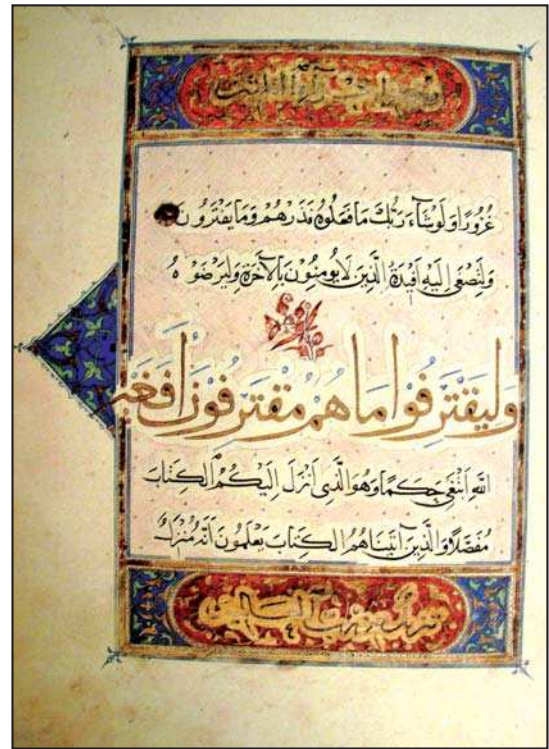 غُرُورًا وَلَوْ شَآءَ رَبُّكَ مَا فَعَلُوهُ فَذَرْهُمْ وَمَا يَفْتَرُونَ
وَلِتَصْغَى إِلَيْهِ أَفِيدَةُ الَّذِينَ لَا يُومِنُونَ بِالْآخِرَةِ وَلِيَرْضَوْهُ
وَلِيَقْتَرِفُوا مَا هُمْ مُقْتَرِفُونَ أَفَغَيْرَ
اللَّهِ أَبْتَغِي حَكَمًا وَهُوَ الَّذِي أَنْزَلَ إِلَيْكُمُ الْكِتَابَ
مُفَصَّلًا وَالَّذِينَ آتَيْنَاهُمُ الْكِتَابَ يَعْلَمُونَ أَنَّهُ مُنَزَّلٌ
تنزيل من رب العالمين